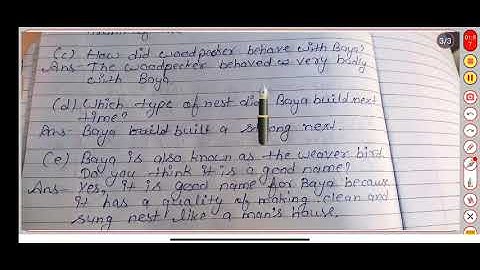 (c) How did woodpecker behave with Baya?
Ans - The woodpecker behaved very badly
with Baya
(d) Which type of nest did Baya build next
time?
Ans - Baya build built a strong next.
(e) Baya is also known as the weaver bird.
Do you think it is a good name?
Ans - Yes, it is good name for Baya because
it has a quality of making clean and
sung nest like a man's house.
3/3